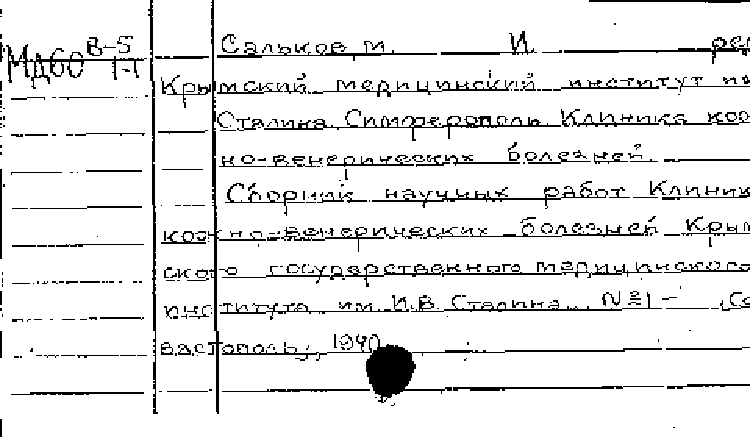 В-5
Мд60 1-1
Сальков м. И. ред
Крымский медицинский институт им
Сталина Симферополь Клиника кож
но-венерических болезней.
Сборник научных работ Клиник
кожно-венерических болезней Крым
ского государственного медицинского
института им. И.В. Сталина. №1- , Се
вастополь, 1940